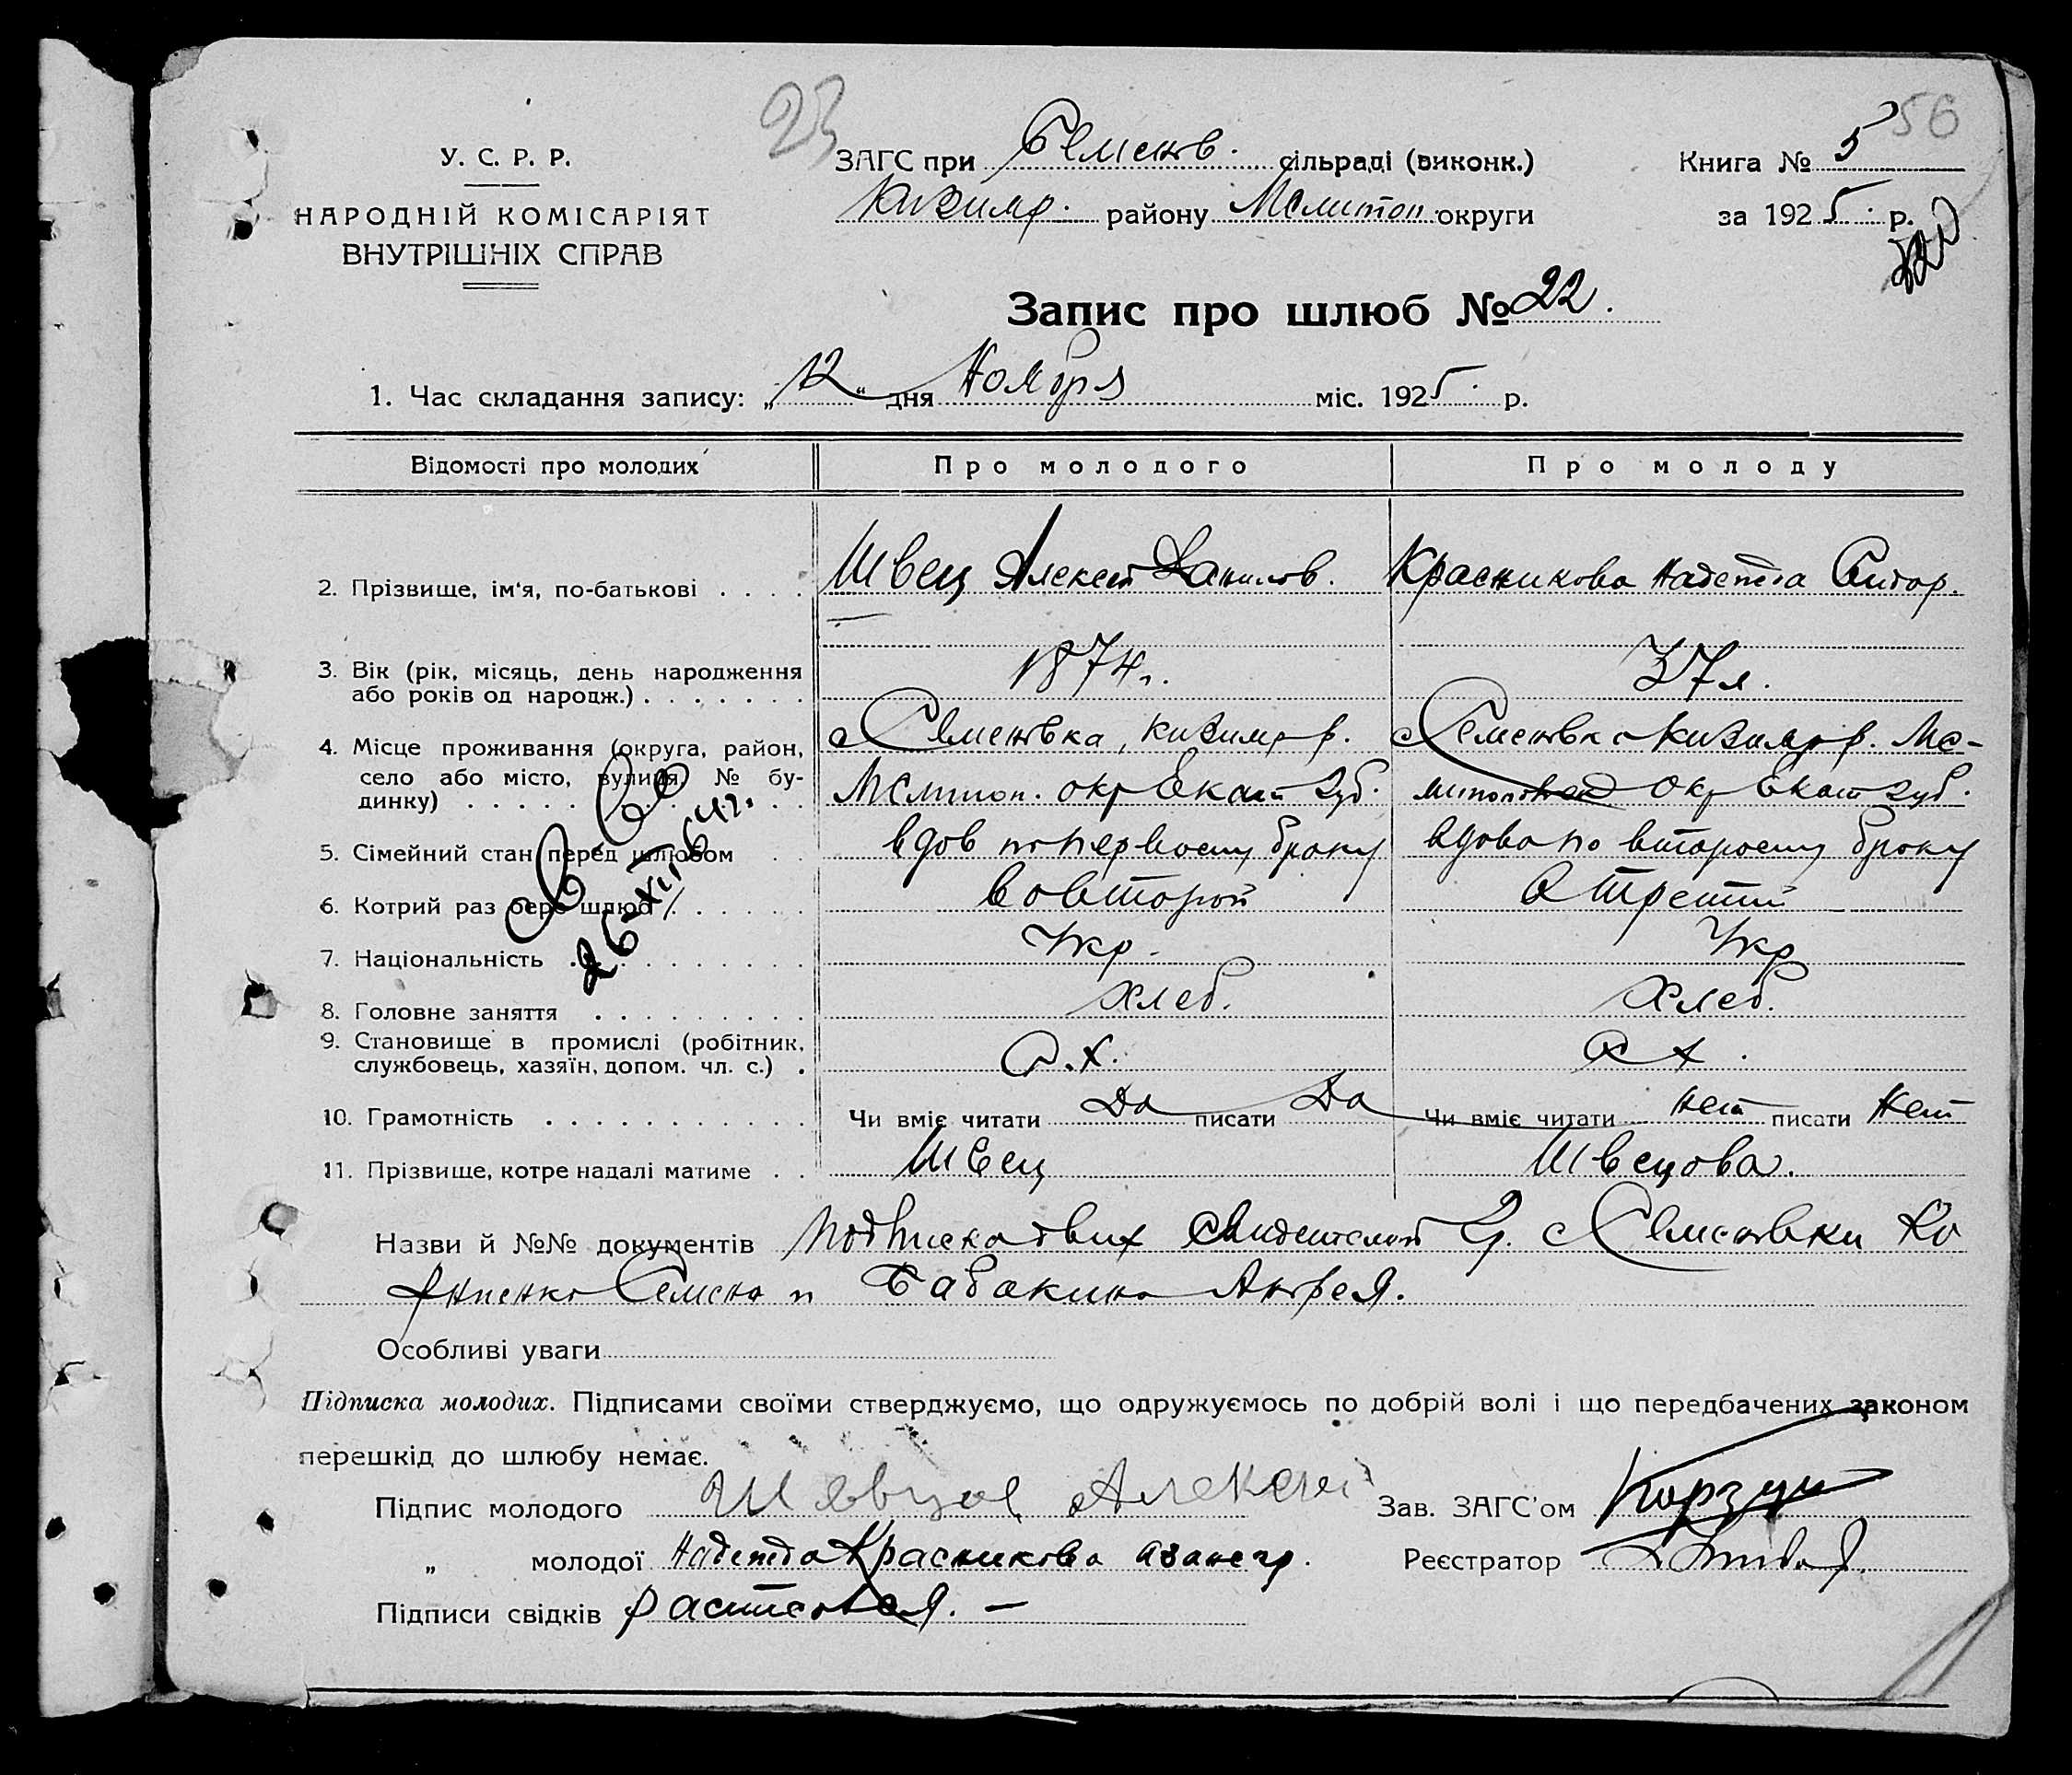 23
56
У. С. Р. Р.
НАРОДНІЙ КОМІСАРІЯТ
ВНУТРІШНІХ СПРАВ
ЗАГС при Семенов. сільраді (виконк.)
Кизияр. району Мелитоп. округи
Книга № 5
за 1925 р.
Запис про шлюб № 22.
1. Час складання запису: „12“ дня Ноября міс. 1925 р.
Відомості про молодих
Про молодого
Про молоду
2. Прізвище, ім'я, по-батькові . . . . Швец Алексей Данилов. Красникова Надежда Сидор.
3. Вік (рік, місяць, день народження
або років од народж.) . . . . . . . 1874 г. 37 л.
4. Місце проживання (округа, район, с Семеновка, Кизияр р. с Семеновка Кизияр р. Ме-
село або місто, вулиця, № бу- Мелитоп. окр Екат губ. литополь окр Екат губ.
динку) . . . . . . . . . . .
5. Сімейний стан перед шлюбом . . вдов по первому браку вдова по второму браку
6. Котрий раз бере шлюб . . . . . . во второй в третий
7. Національність . . . . . . . . . Укр. Укр
8. Головне заняття . . . . . . . . . хлеб. хлеб.
9. Становище в промислі (робітник,
службовець, хазяїн, допом. чл. с.) . с.х. с х.
10. Грамотність . . . . . . . . . . . Чи вміє читати Да писати Да Чи вміє читати нет писати нет
11. Прізвище, котре надалі матиме . . Швец Швецова.
26-XII 64 г.
Назви й №№ документів Подписка двух свидетелей гр. с Семеновки Ко
Семена и Бабакина Андрея.
Особливі уваги
Підписка молодих. Підписами своїми стверджуємо, що одружуємось по добрій волі і що передбачених законом
перешкід до шлюбу немає.
Підпис молодого Алексей
Зав. ЗАГС'ом Корзун
„ молодої Надежда Красникова а за негр.
Реєстратор
Підписи свідків